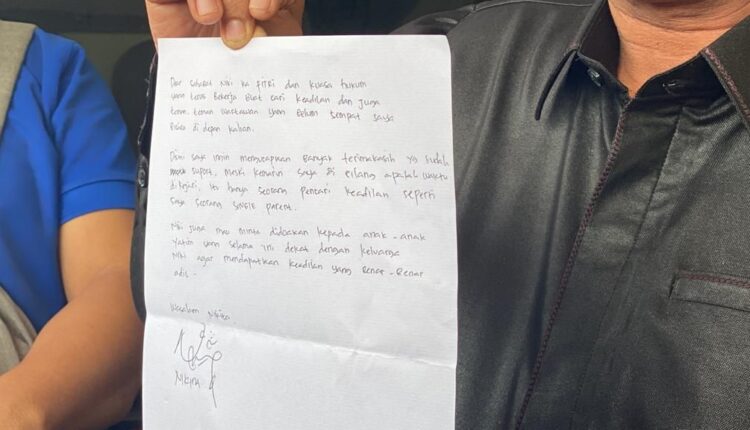 Dear sahabat Niki ka FITRI dan kuasa hukum
yang terus Bekerja Buat cari keadilan dan juga
teman-teman wartawan yang Belum sempat saya
di depan kalian.
Disini saya ingin mengucapkan Banyak terimakasih yg sudah
suport, meski kemarin saya di Bilang apalah waktu
di kejari, itu hanya seorang pencari keadilan seperti
saya seorang single parent.
Niki juga mau minta didoakan kepada anak-anak
Yatim yang selama ini dekat dengan keluarga
Niki agar mendapatkan keadilan yang Benar-Benar
adil-
Wasalam